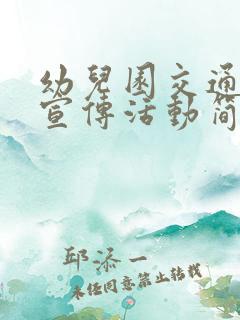 幼兒園交通
宣傳活動简
邱添一
未经同意禁止转载